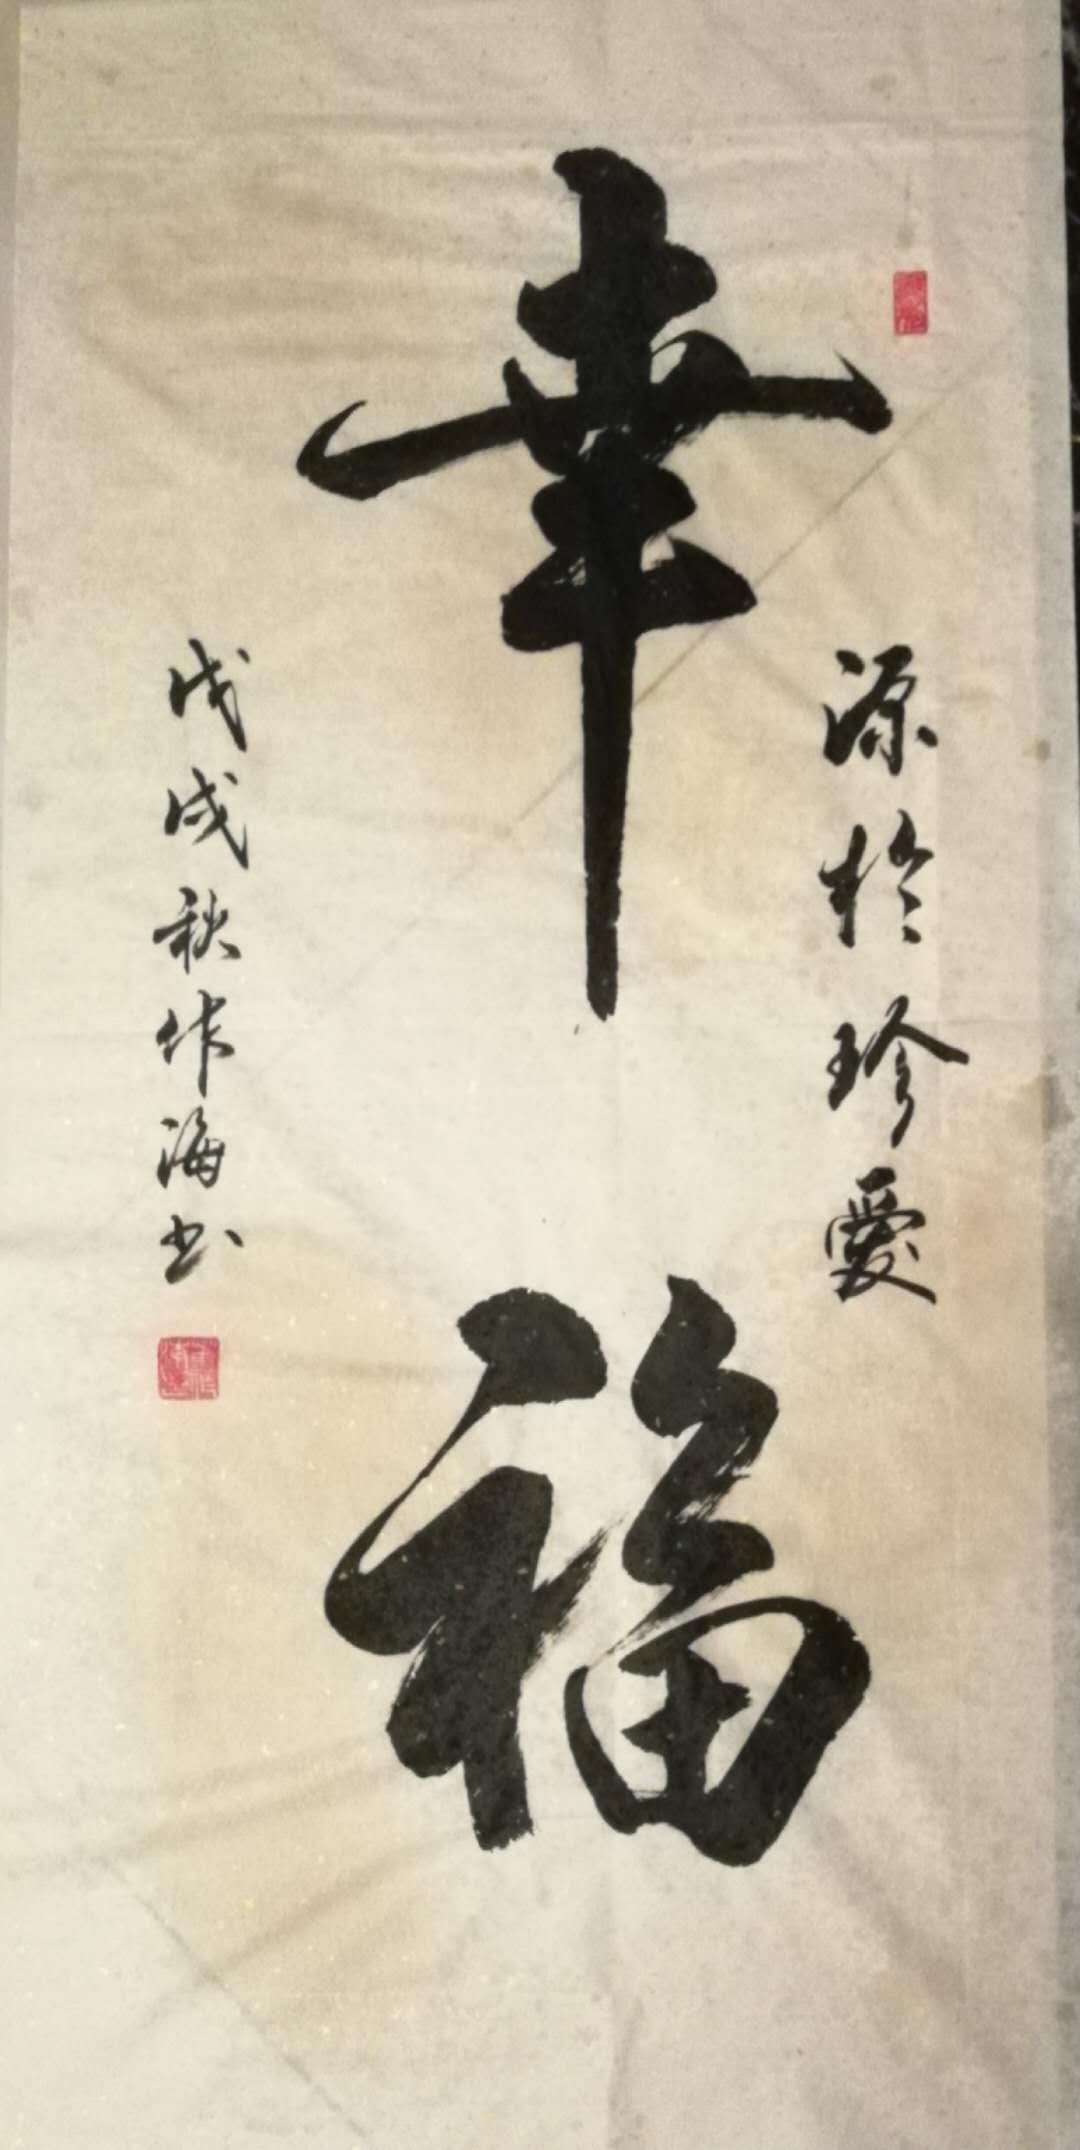 幸福
源於珍愛
戊戌秋作海书